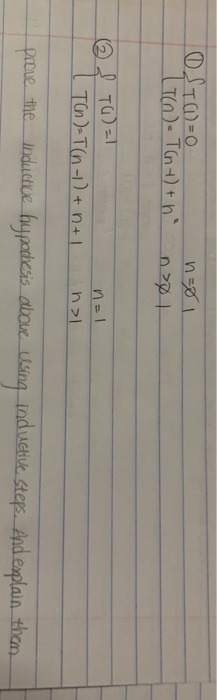 ① { T(1)=0 n=0 1
T(n)=T(n-1)+n² n>0 1
② { T(1)=1 n=1
T(n)=T(n-1)+n+1 n>1
prove the inductive hypothesis above using inductive steps. And explain them